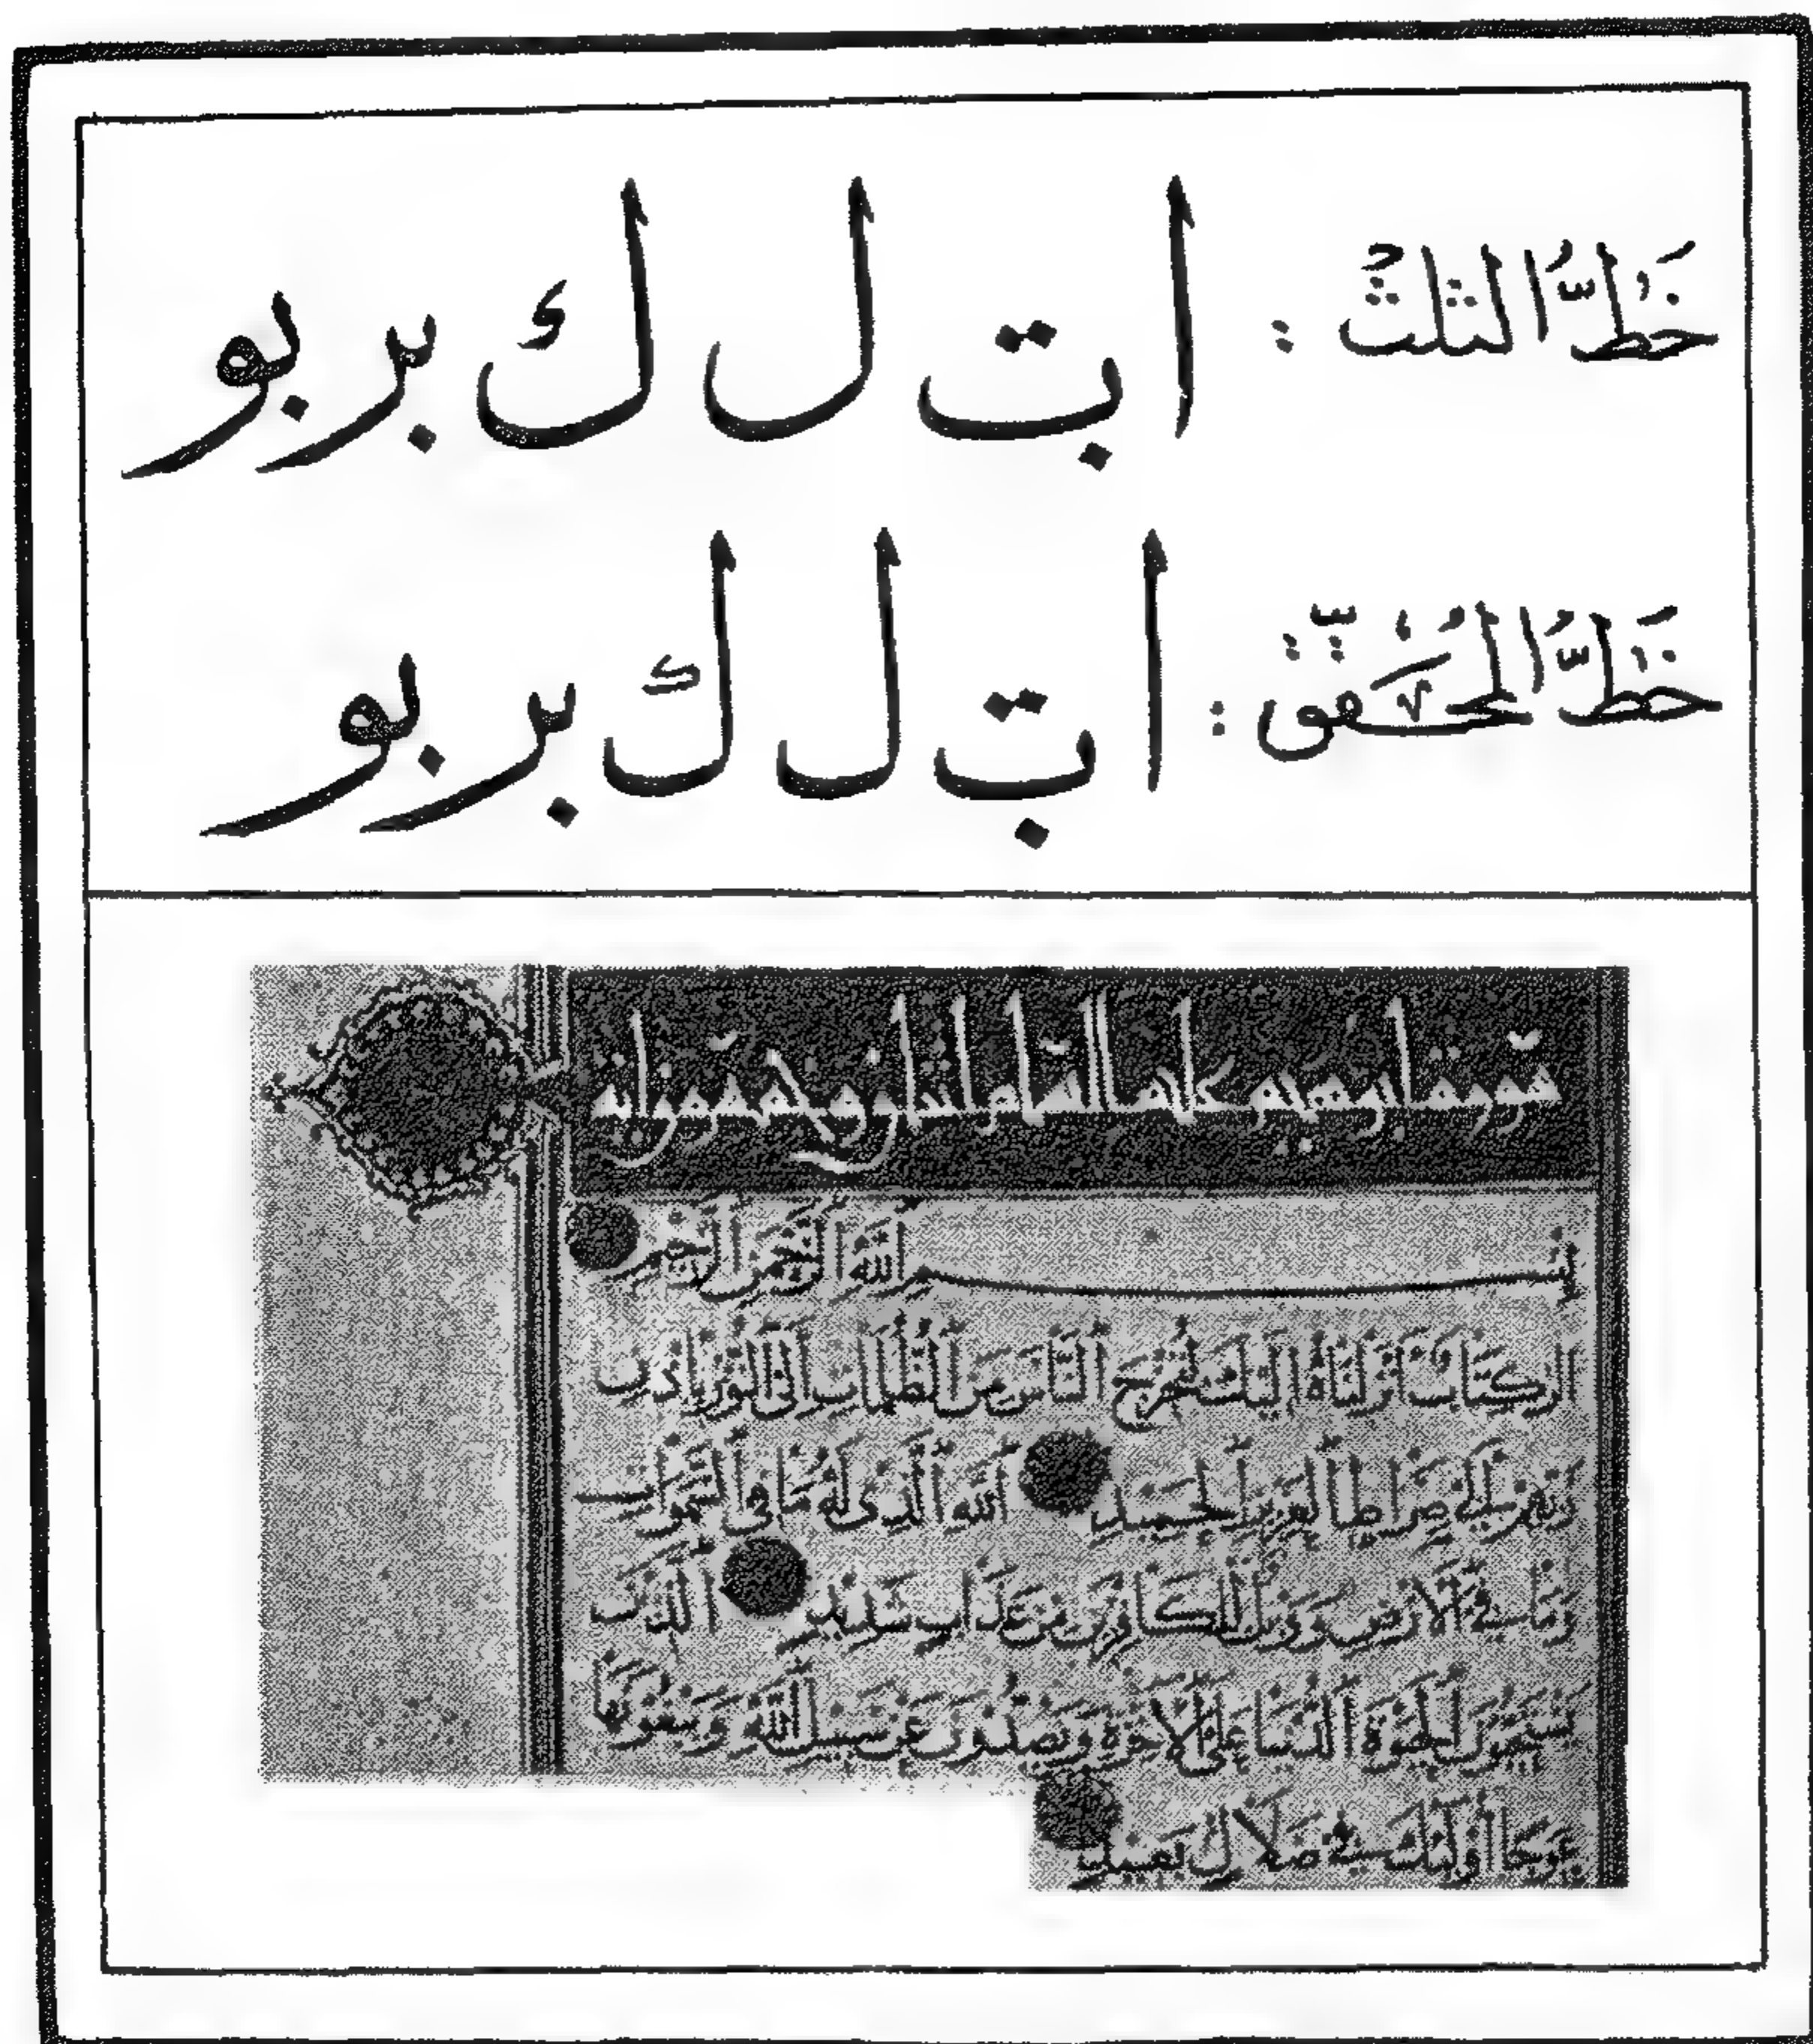 خَطُّ الثُّلُث : ا بت ل ك بر بو
خَطُّ المُحَقَّق : ا بت ل ك بر بو
سورة ابرهيم السلام اثنان وخمسون اية
بسم الله الرحمن الرحيم
الر كتاب انزلناه اليك لتخرج الناس من الظلمات الى النور باذن
ربهم الى صراط العزيز الحميد الله الذى له ما فى السموات
وما فى الارض وويل للكافرين من عذاب شديد الذين
يستحبون الحيوة الدنيا على الاخرة ويصدون عن سبيل الله ويبغونها
عوجا اولئك فى ضلال بعيد